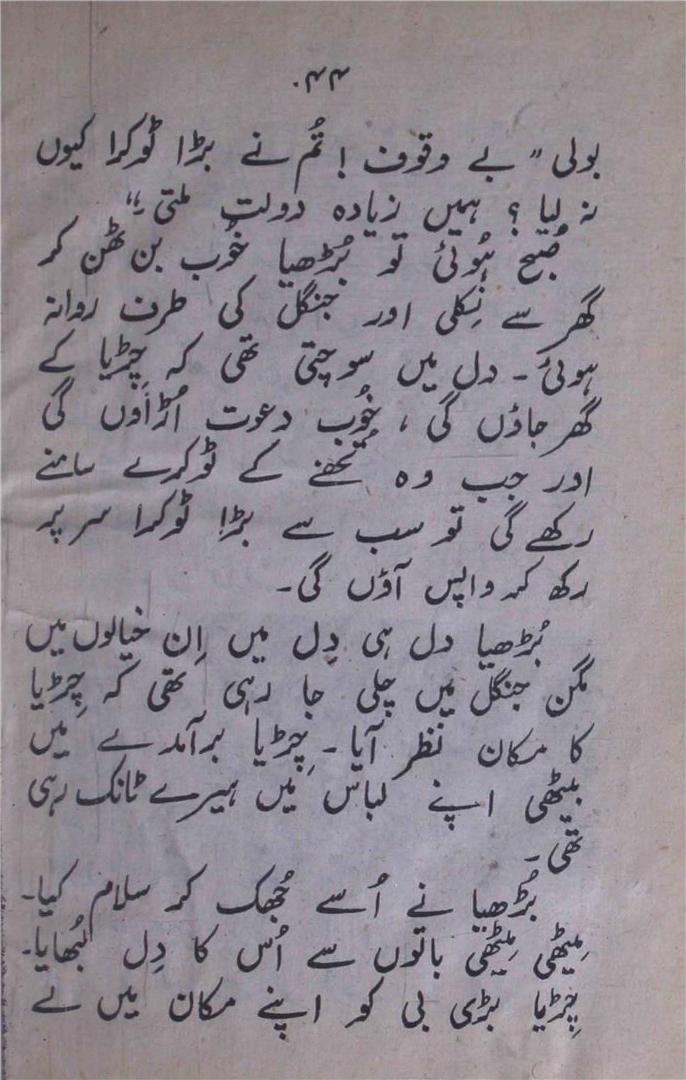 ۴۴
بولی " بے وقوف ! تُم نے بڑا ٹوکرا کیوں
نہ لیا ؟ ہمیں زیادہ دولت ملتی ۔"
صُبح ہُوئی تو بُڑھیا خُوب بن ٹھن کر
گھر سے نِکلی اور جنگل کی طرف روانہ
ہوئی ۔ دل میں سوچتی تھی کہ چِڑیا کے
گھر جاؤں گی ، خُوب دعوت اُڑاؤں گی
اور جب وہ تُحفے کے ٹوکرے سامنے
رکھے گی تو سب سے بڑا ٹوکرا سر پر
رکھ کر واپس آؤں گی ۔
بُڑھیا دل ہی دِل میں اِن خیالوں میں
مگن جنگل میں چلی جا رہی تھی کہ چِڑیا
کا مکان نظر آیا ۔ چِڑیا برآمدے میں
بیٹھی اپنے لباس میں ہیرے ٹانک رہی
تھی ۔
بُڑھیا نے اُسے جُھک کر سلام کیا ۔
مِیٹھی مِیٹھی باتوں سے اُس کا دِل لُبھایا ۔
چِڑیا بڑی بی کو اپنے مکان میں لے